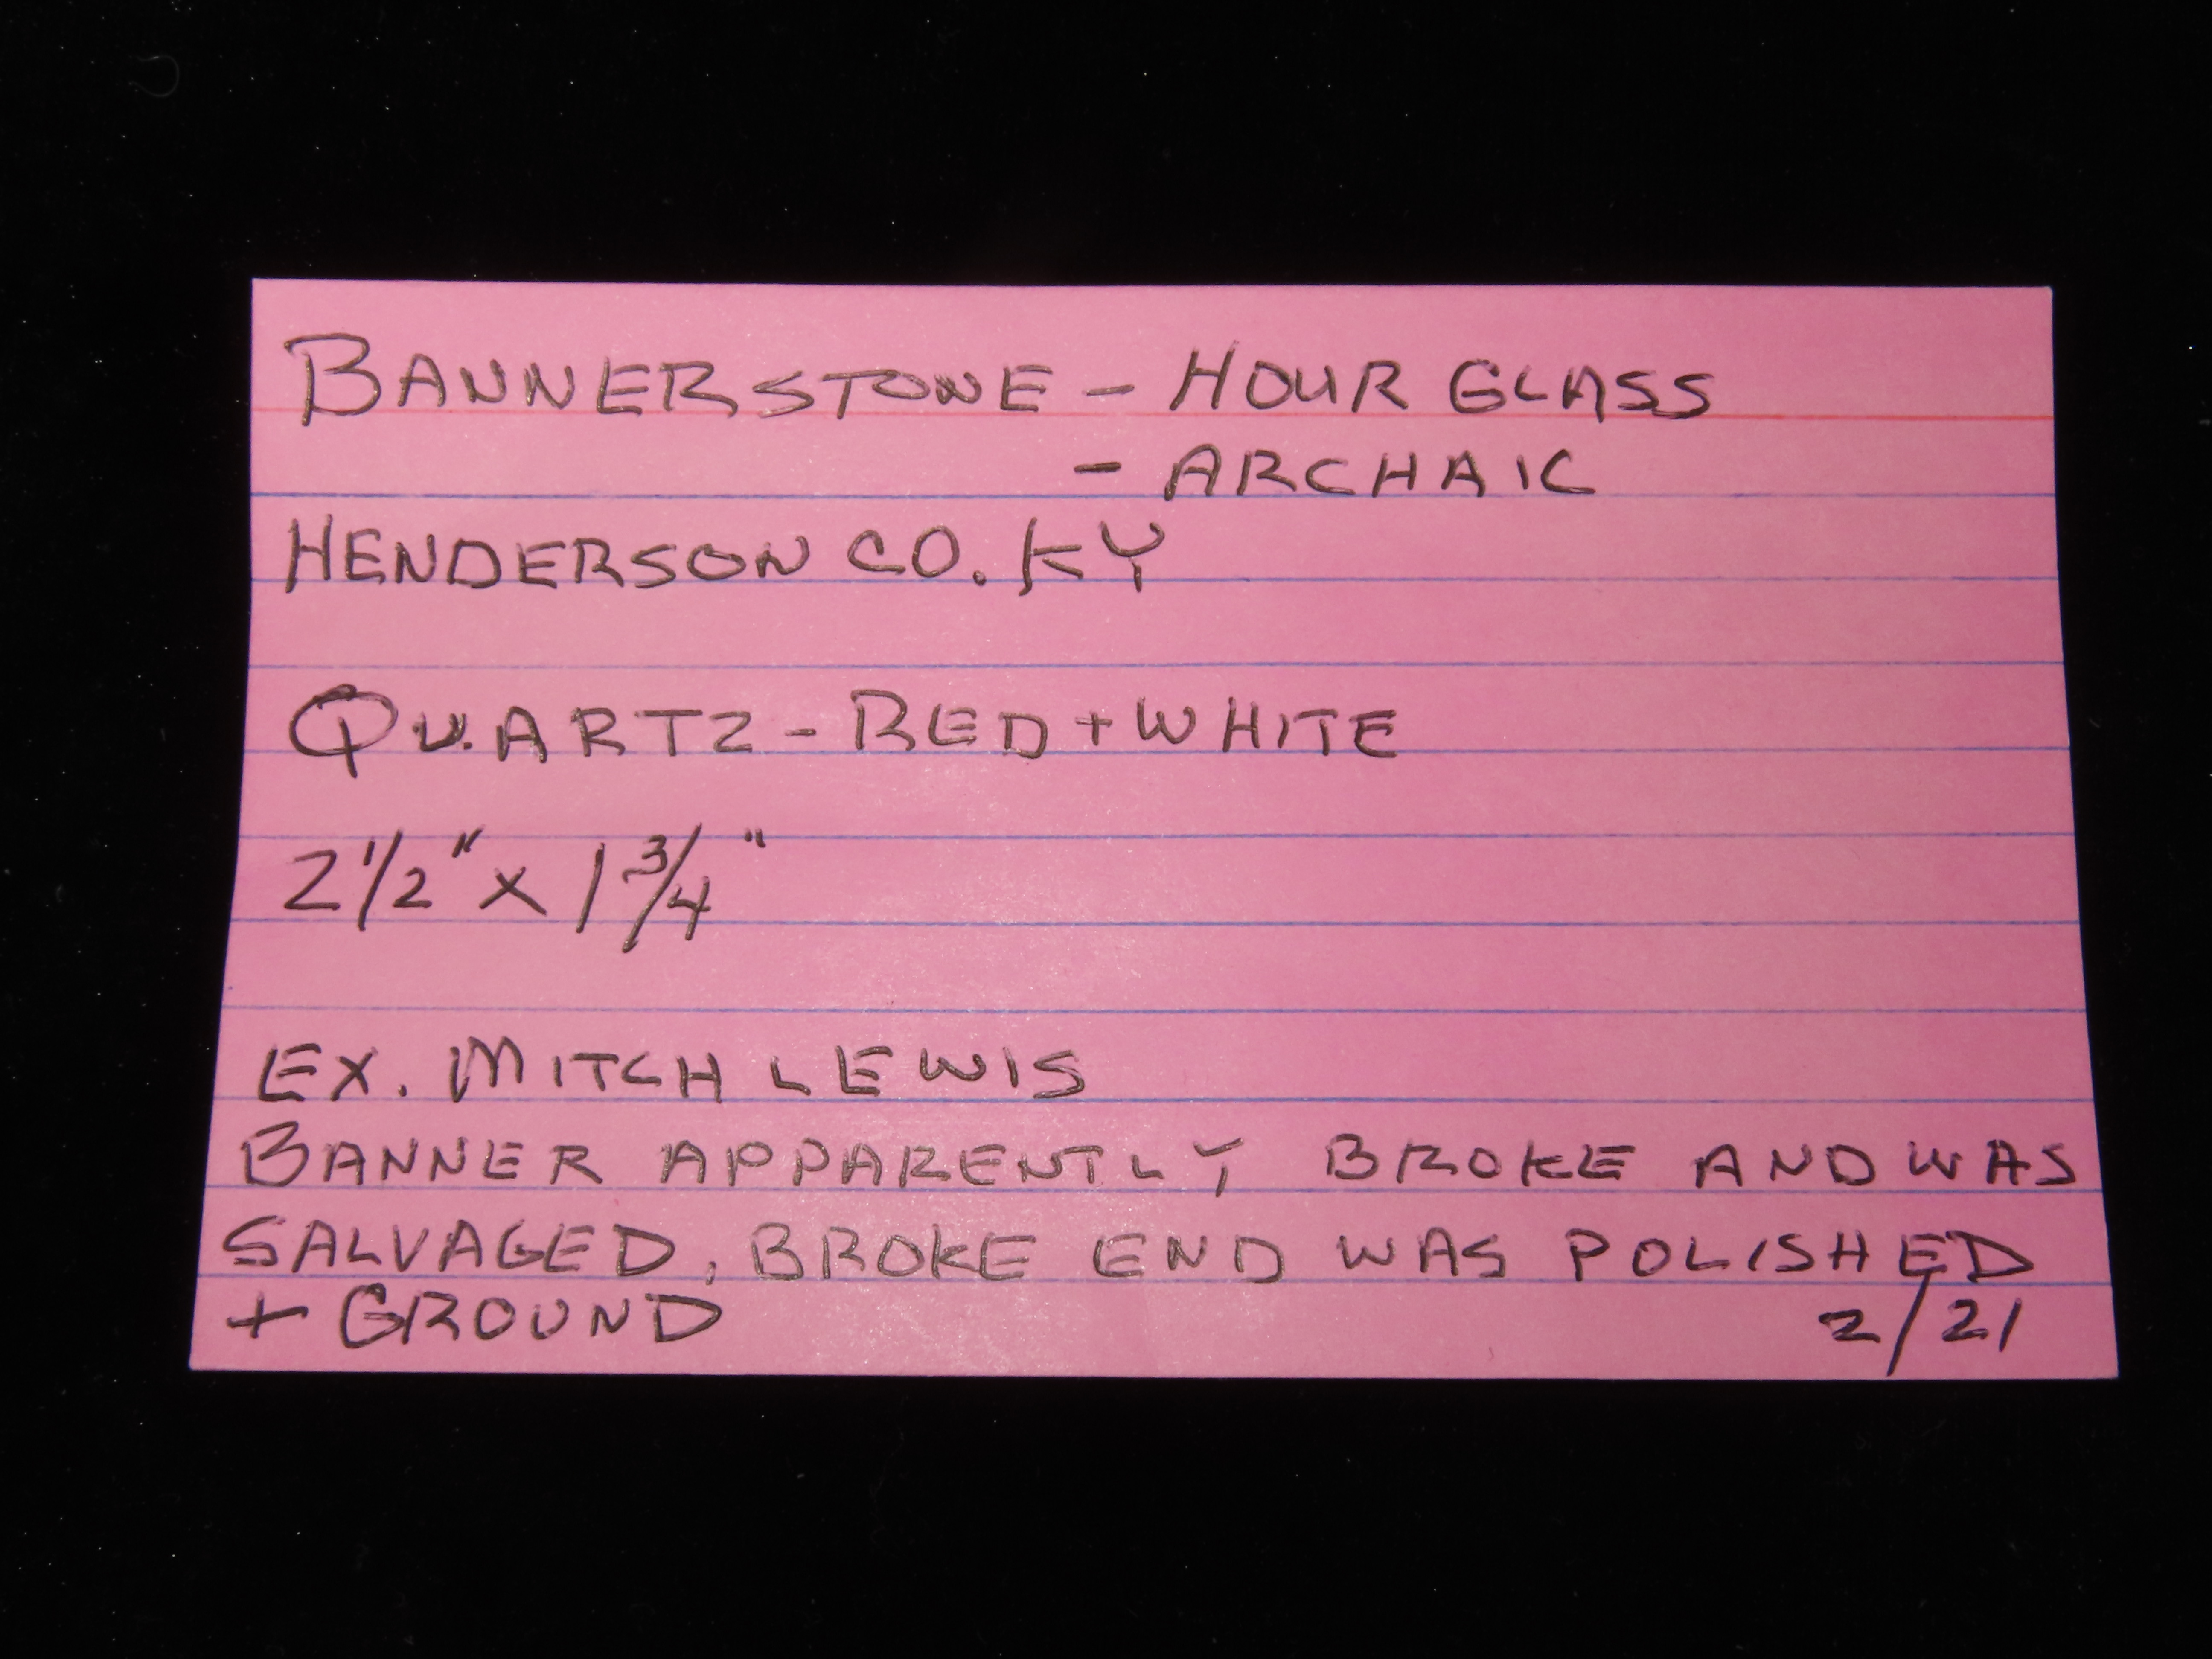 BANNERSTONE - HOUR GLASS
- ARCHAIC
HENDERSON CO. KY
QUARTZ - RED + WHITE
2 1/2" x 1 3/4"
EX. MITCH LEWIS
BANNER APPARENTLY BROKE AND WAS
SALVAGED. BROKE END WAS POLISHED
+ GROUND 2/21